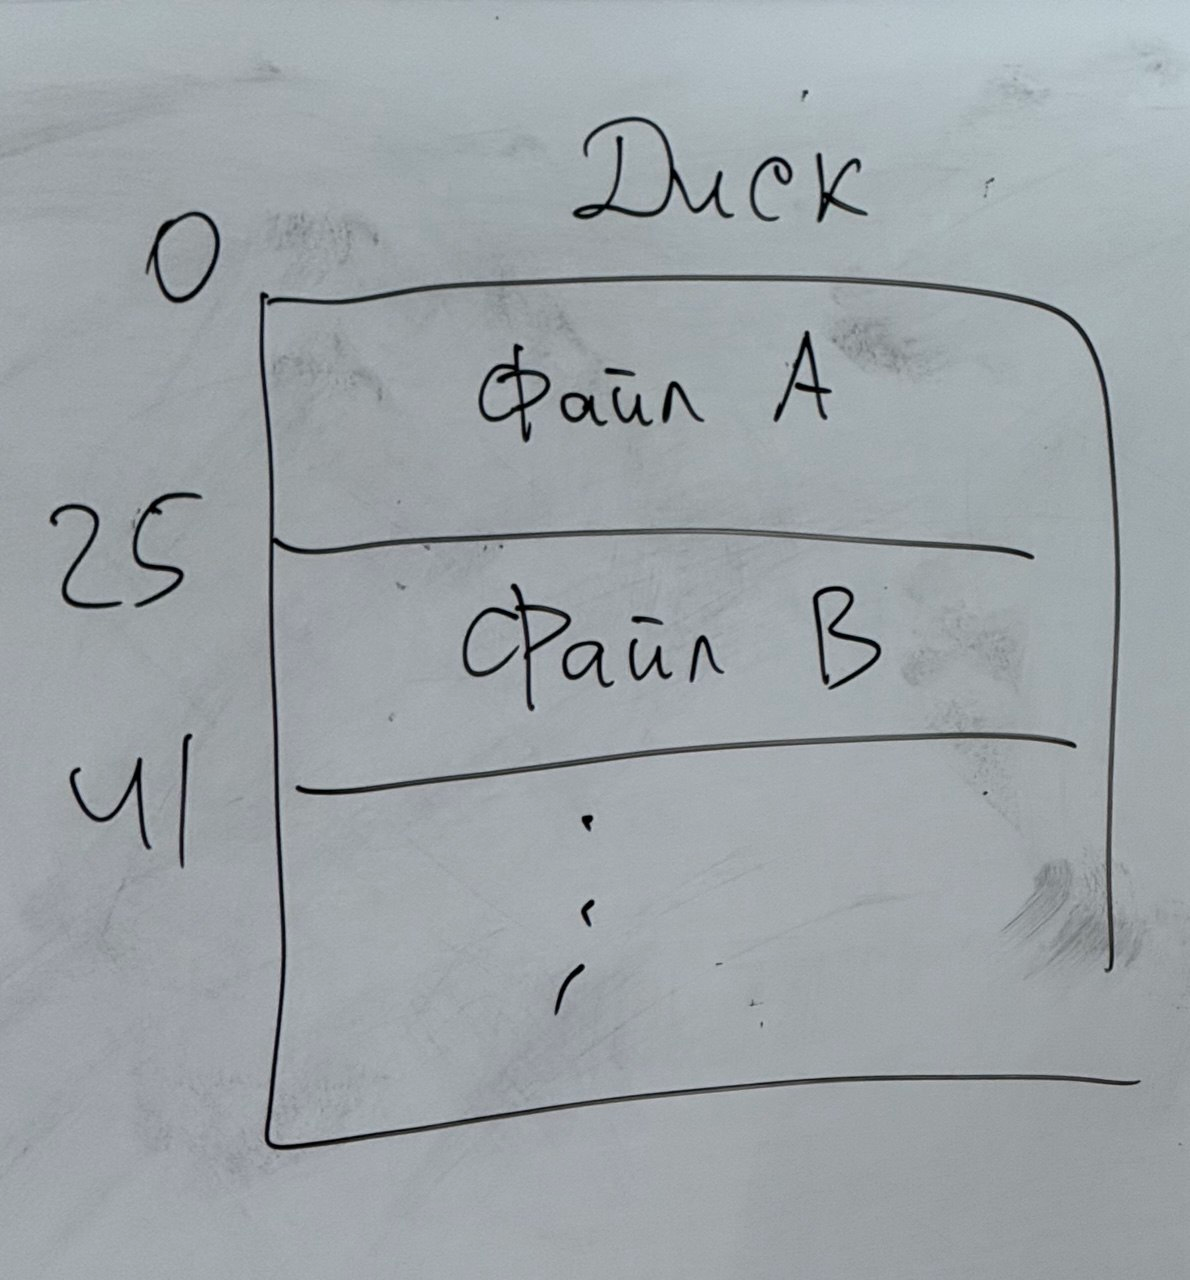 Диск
0
Файл А
25
Файл В
41